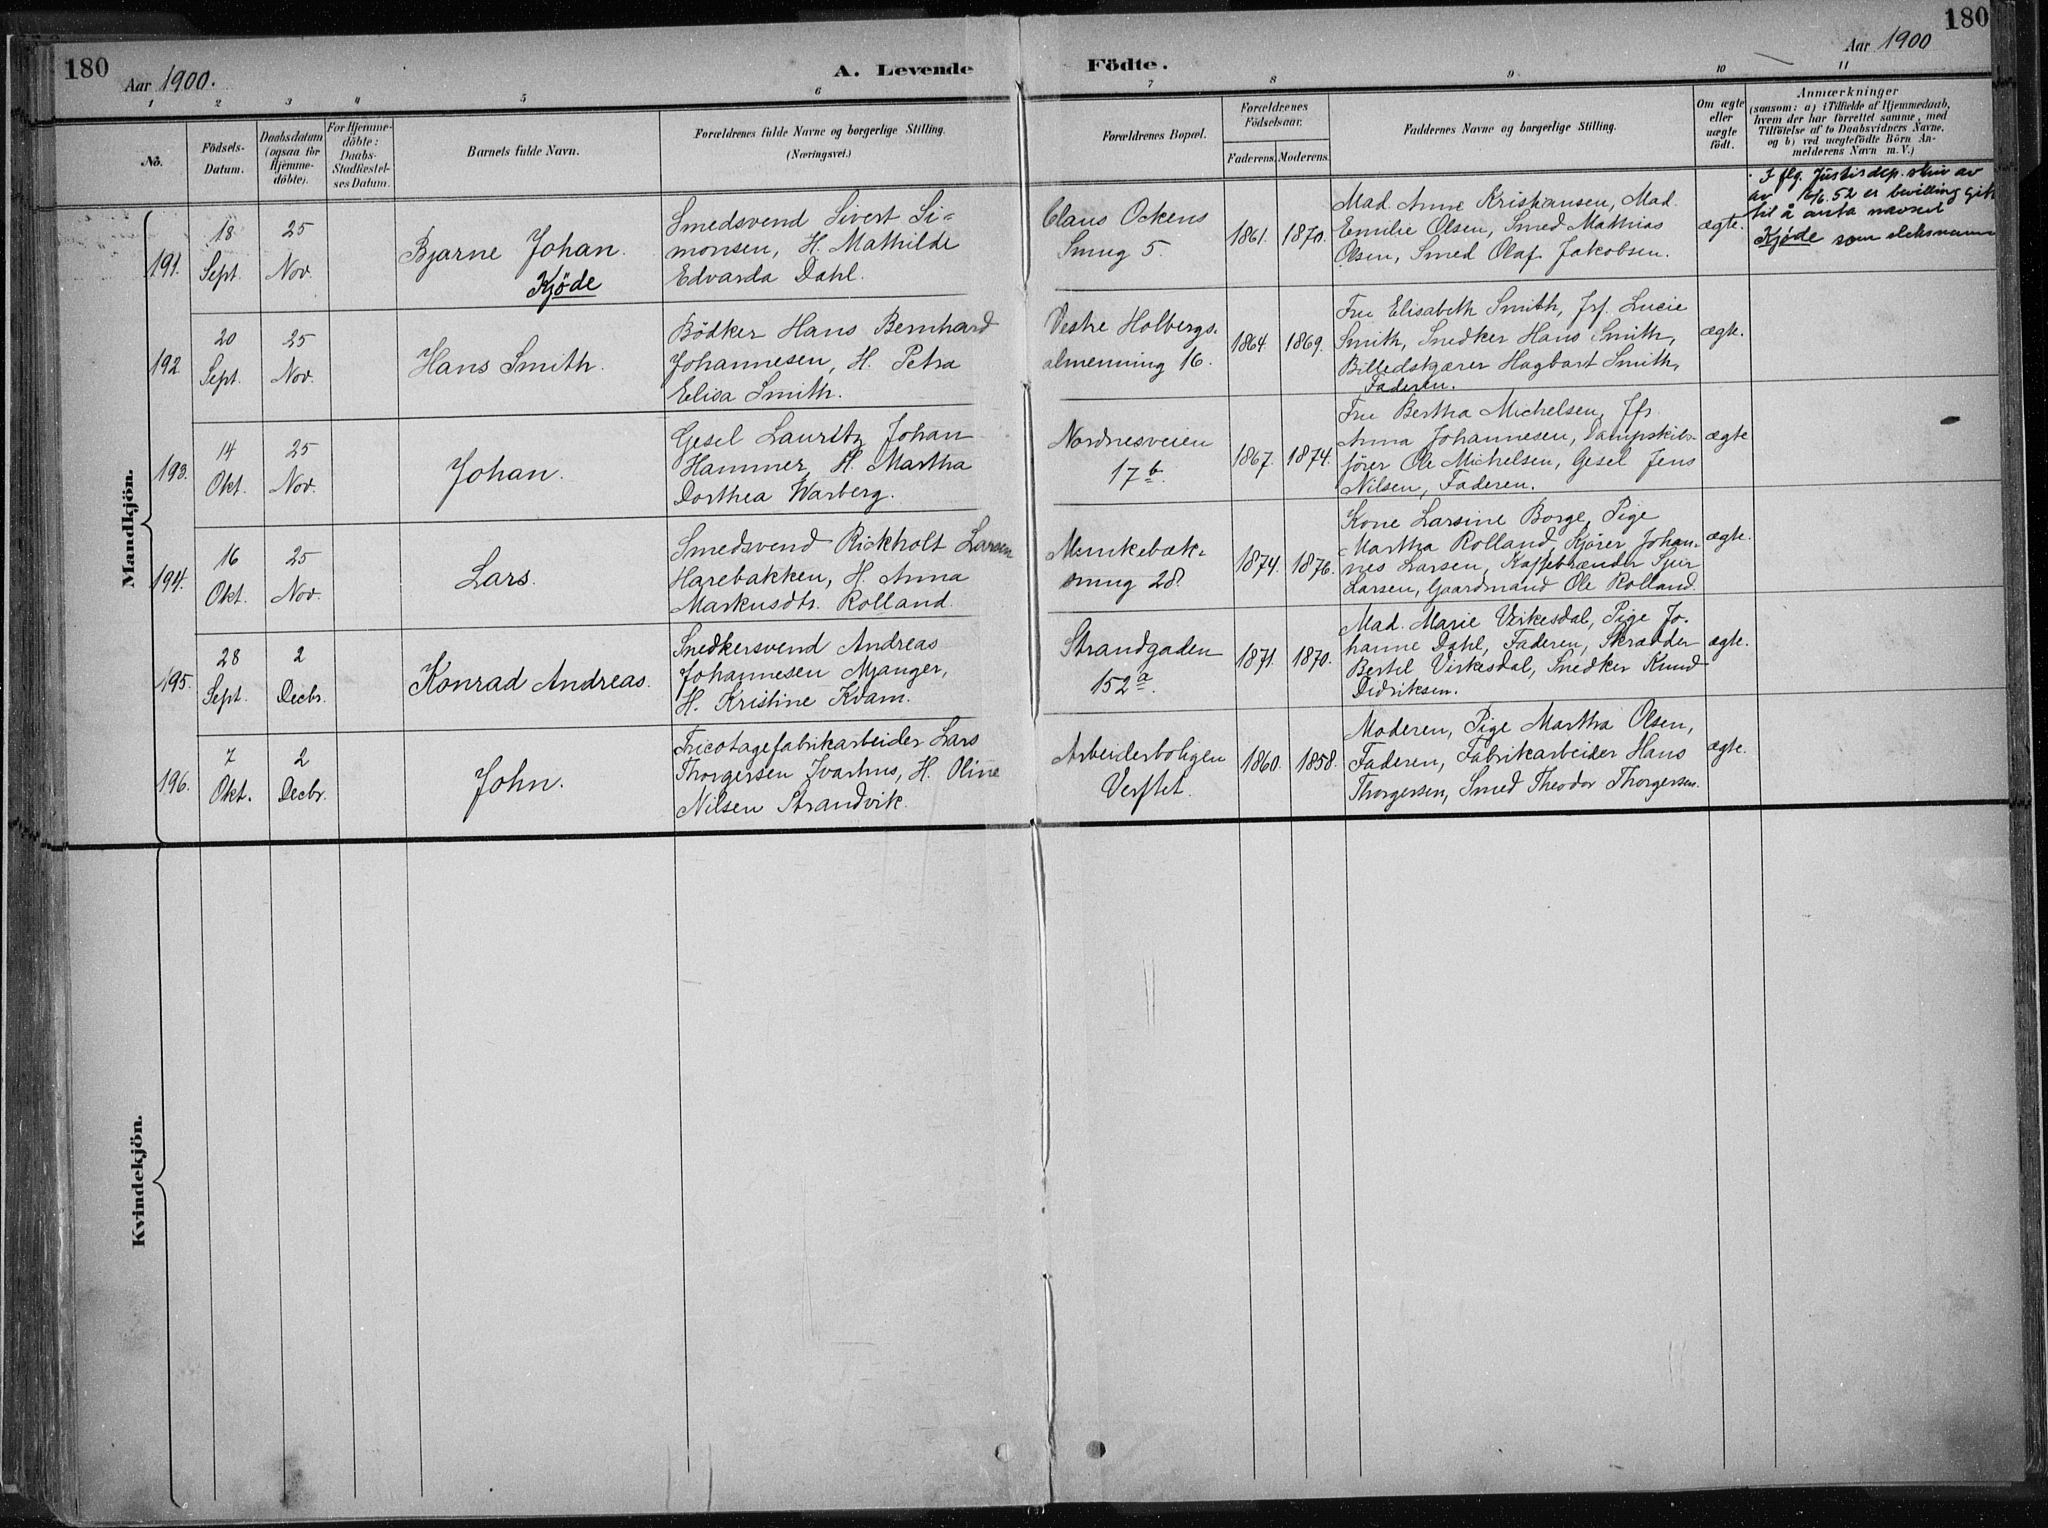 180
Aar 1900.
A. Levende
Födte.
Aar 1900
180
1 2 3 4 5 6 7 8 9 10 11
No.
Födsels-
Datum.
Daabsdatum
(ogsaa for
Hjemme-
döbte).
For Hjemme-
döbte:
Daabs-
Stadfæstel-
ses Datum.
Barnets fulde Navn.
Forældrenes fulde Navne og borgerlige Stilling.
(Næringsvei.)
Forældrenes Bopæl.
Forældrenes
Födselsaar.
Faderens. Moderens.
Faddernes Navne og borgerlige Stilling.
Om ægte
eller
uægte
födt.
Anmærkninger
(saasom: a) i Tilfælde af Hjemmedaab,
hvem der har forrettet samme, med
Tilföielse af to Daabsvidners Navne,
og b) ved uægtefödte Börn An-
melderens Navn m. V.)
Mandkjön.
191.
18
Sept.
25
Nov.
Bjarne Johan.
Kjøde
Smedsvend Sivert Si-
monsen, H. Mathilde
Edvarda Dahl.
Claus Ockens
Smug 5.
1861. 1870.
Mad. Anne Kristiansen, Mad.
Emilie Olsen, Smed Mathias
Olsen, Smed Olaf Jakobsen.
ægte.
I flg. Justisdep. skriv av
av 52 er bevilling gitt
til å anta navnet
Kjøde som slektsnavn
192
20
Sept.
25
Nov.
Hans Smith.
Bödker Hans Bernhard
Johannesen, H. Petra
Elisa Smith.
Vestre Holbergs-
almenning 16.
1864 1869.
Fru Elisabeth Smith, Jrf. Lucie
Smith, Snedker Hans Smith,
Billedskjærer Hagbart Smith,
Faderen.
ægte.
193.
14
Okt.
25
Nov.
Johan.
Gesel Lauritz Johan
Hammer, H. Martha
Dorthea Warberg.
Nordnesveien
17 b.
1867. 1874.
Fru Bertha Michelsen, Jfr.
Anna Johannesen, Dampskibs-
förer Ole Michelsen, Gesel Jens
Nilsen, Faderen.
ægte
194.
16
Okt.
25
Nov.
Lars.
Smedsvend Rickholt Larsen
Harebakken, H. Anna
Markusdtr. Rolland.
Munkebæk-
smug 28.
1874. 1876.
Kone Larsine Borge, Pige
Martha Rolland, Kjörer Johan-
nes Larsen, Kaffebrænder Sjur
Larsen, Gaardmand Ole Rolland.
ægte.
195.
28
Sept.
2
Decbr.
Konrad Andreas.
Snedkersvend Andreas
Johannesen Mjanger,
H. Kristine Kvam.
Strandgaden
152 a.
1871. 1870.
Mad. Marie Virkesdal, Pige Jo-
hanne Dahl, Faderen, Skrædder
Bertel Virkesdal, Snedker Knud
Didriksen.
ægte.
196.
7
Okt.
2
Decbr.
John.
Tricotagefabrikarbeider Lars
Thorgersen Ivarhus, H. Oline
Nilsen Strandvik.
Arbeiderboligen
Verftet.
1860. 1858.
Moderen, Pige Martha Olsen,
Faderen, Fabrikarbeider Hans
Thorgersen, Smed Theodor Thorgersen.
ægte.
Kvindekjön.